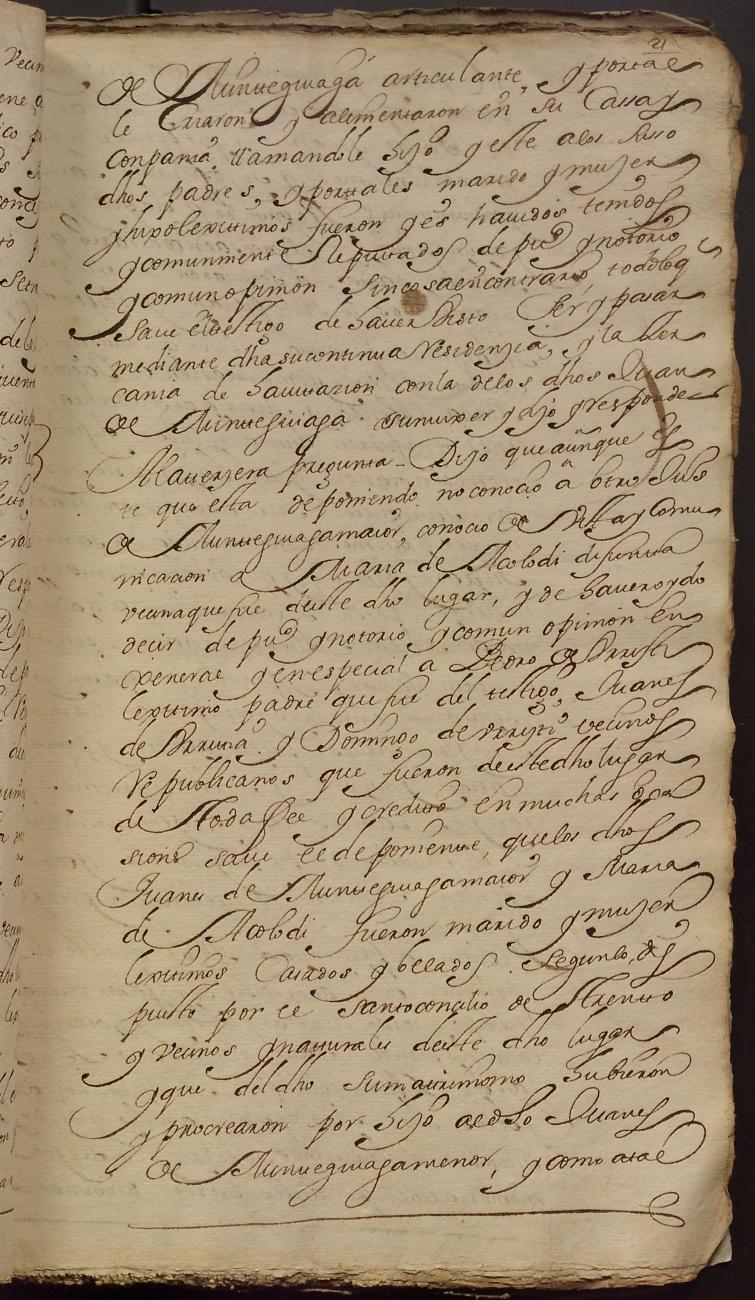 21
de Muntegwiaga articulante, y por tal
le Criaron y alimentaron en su Cassa y
Conpania, llamandole hijo y este a los suso
dhos padres, y por tales marido y mujer
y hixo lexitimos fueron y es havidos tenidos
y comunmente Reputados de puco y notorio
y comun opinion sin cosa en contrario todo lo q
save el testigo de haver Visto Ser y pasar
mediante dha su continua Residenzia, y la Ver
cania de havitazion con la de los dhos Juan
de Muntegwiaga su muxer y hijo y responde
A la terzera pregunta - Dijo que aunque el
te que esta deponiendo no conocio a otro Juºs
de Muntegwiagamaior, conocio de Vista y Comu
nicacion a Maria de Acolodi difunta
vecina que fue deste dho lugar, y de haver oydo
decir de puco y notorio y comun opinion en
xeneral y en especial a Pedro de Urristi
lexitimo padre que fue del testigo, Juanes
de Urrutia y Domingo de Urristi vecinos
Republicanos que fueron deste dho lugar
de Toda fee y credito en muchas oca
siones save el deponiente, que los dhos
Juanes de Muntegwiagamaior y Maria
de Acolodi fueron marido y mujer
lexitimos Casados y bellados Segun lo dis
puesto por el santo concilio de Trento
y vecinos y naturales deste dho lugar
y que del dho su matrimonio hubieron
y procrearon por hijo al dho Juanes
de Muntegwiagamenor, y como a tal